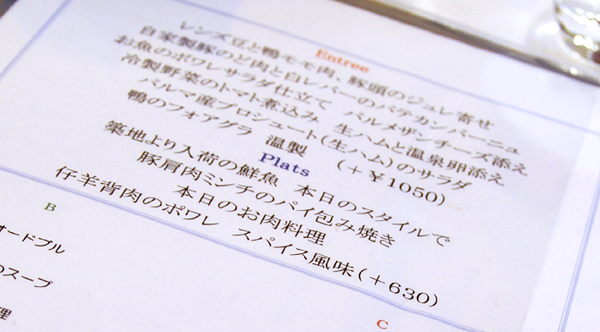 Entree
レンズ豆と鴨モモ肉、豚頭のジュレ寄せ
自家製豚のど肉と白レバーのパテカンパーニュ
お魚のポワレサラダ仕立て パルメザンチーズ添え
冷製野菜のトマト煮込み 生ハムと温泉卵添え
パルマ産プロシュート(生ハム)のサラダ
鴨のフォアグラ 温製 (+¥1050)
Plats
築地より入荷の鮮魚 本日のスタイルで
豚肩肉ミンチのパイ包み焼き
本日のお肉料理
仔羊背肉のポワレ スパイス風味(+630)
B
オードブル
のスープ
理
C